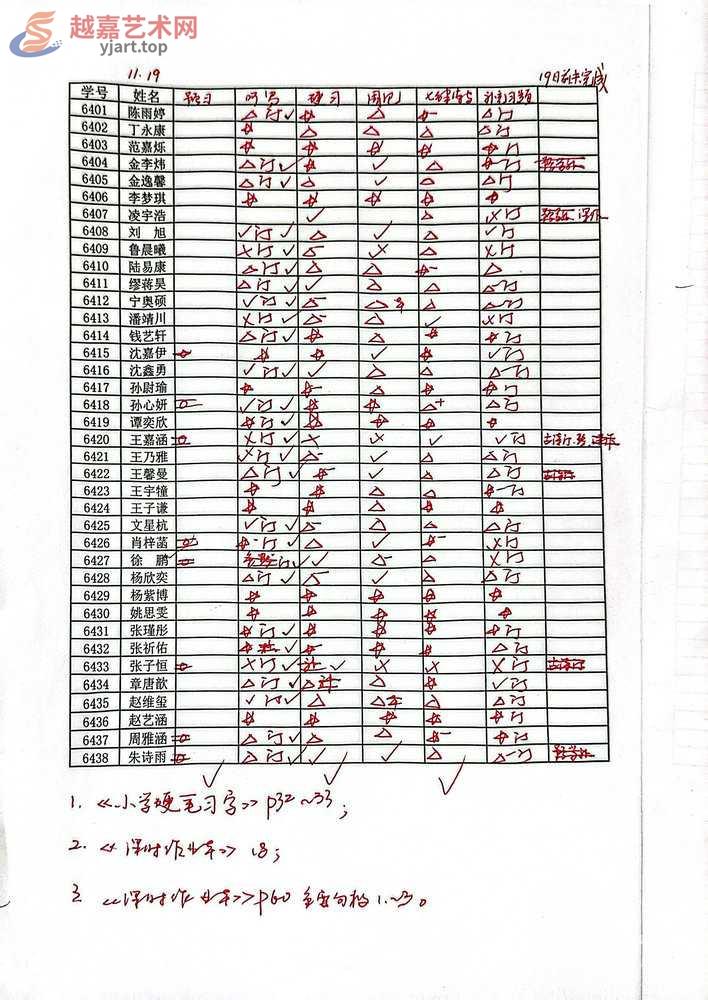 越嘉艺术网
yjart.top
11.19 19日前未完成
学号 姓名 预习 听写 练习 周记
6401 陈雨婷 △ 订 ✓ ☆ △ ☆- △ 订
6402 丁永康 ☆ △ △ ☆ △ 订
6403 范嘉烁 ☆ ☆ ✓ ☆ ☆ 订
6404 金李炜 △ 订 ✓ ☆ ✓ △ ☆- 订
6405 金逸馨 △ 订 ✓ △ ✓ ☆ △ 订
6406 李梦琪 ☆ ☆ ☆ ☆ ☆
6407 凌宇浩 ✓ △ ✗ 订
6408 刘旭 ✓ 订 ✓ △ ✓ △ ✓ 订
6409 鲁晨曦 ✗ 订 ✓ △- ✗ △ ✗ 订
6410 陆易康 △ 订 ✓ △ △ ☆- △
6411 缪蒋昊 △ 订 ✓ ✓ △ △ △ 订
6412 宁奥硕 ✓ 订 ✓ △- △ △ △- 订
6413 潘靖川 ✗ 订 ✓ △- △ ✓ ✗ 订
6414 钱艺轩 △ 订 ✓ ☆ △ ☆ ☆ 订
6415 沈嘉伊 ☆ ☆ ✓ ☆ ✓ 订
6416 沈鑫勇 ✓ 订 ✓ ✓ △ △ △- 订
6417 孙尉瑜 ☆ ☆- △ ☆ ☆ 订
6418 孙心妍 ✓ 订 ✓ ☆ ☆ △+ △ 订
6419 谭奕欣 ☆ 订 ✓ ☆ △ ☆ ☆
6420 王嘉涵 ✗ 订 ✓ ✗ ✗ ✓ ✓ 订
6421 王乃雅 ✗ 订 ✓ △- ✓ △ △ 订
6422 王馨曼 △ 订 ✓ ☆- ✓ △ △ 订
6423 王宇犝 ☆ ☆ △ △ ☆- 订
6424 王子谦 ☆ ☆ △ ☆ ☆
6425 文星杭 ✓ 订 ✓ △- △ △ △ 订
6426 肖梓菡 ☆- 订 ✓ △ ✓ ☆- ✗ 订
6427 徐鹏 订 ✓ ✓ △- △ ✗ 订
6428 杨欣奕 △ 订 ✓ △- ✓ △ △ 订
6429 杨紫博 ☆ ☆ ☆ ☆ ☆
6430 姚思雯 ☆ ☆ ☆ ☆ ☆
6431 张瑾彤 ☆ 订 ✓ ☆ ☆ ☆ ☆ 订
6432 张祈佑 ☆ ✓ ☆- △ ☆ △ 订
6433 张子恒 ✗ 订 ✓ ✓ ✗ ✗ ✗ 订
6434 章唐歆 △ 订 ✓ △ △ ☆ ✓ 订
6435 赵维玺 ✓ 订 ✓ △ △ △ △ 订
6436 赵艺涵 ☆ ☆ ☆ ☆ ☆ 订
6437 周雅涵 △ 订 ✓ △ △ ☆- △ 订
6438 朱诗雨 △ 订 ✓ ✓ ✓ △ △- 订
1. 《小学硬笔习字》P32~33;
2. 《课时作业本》18;
3. 《课时作业本》P60 1.~3。